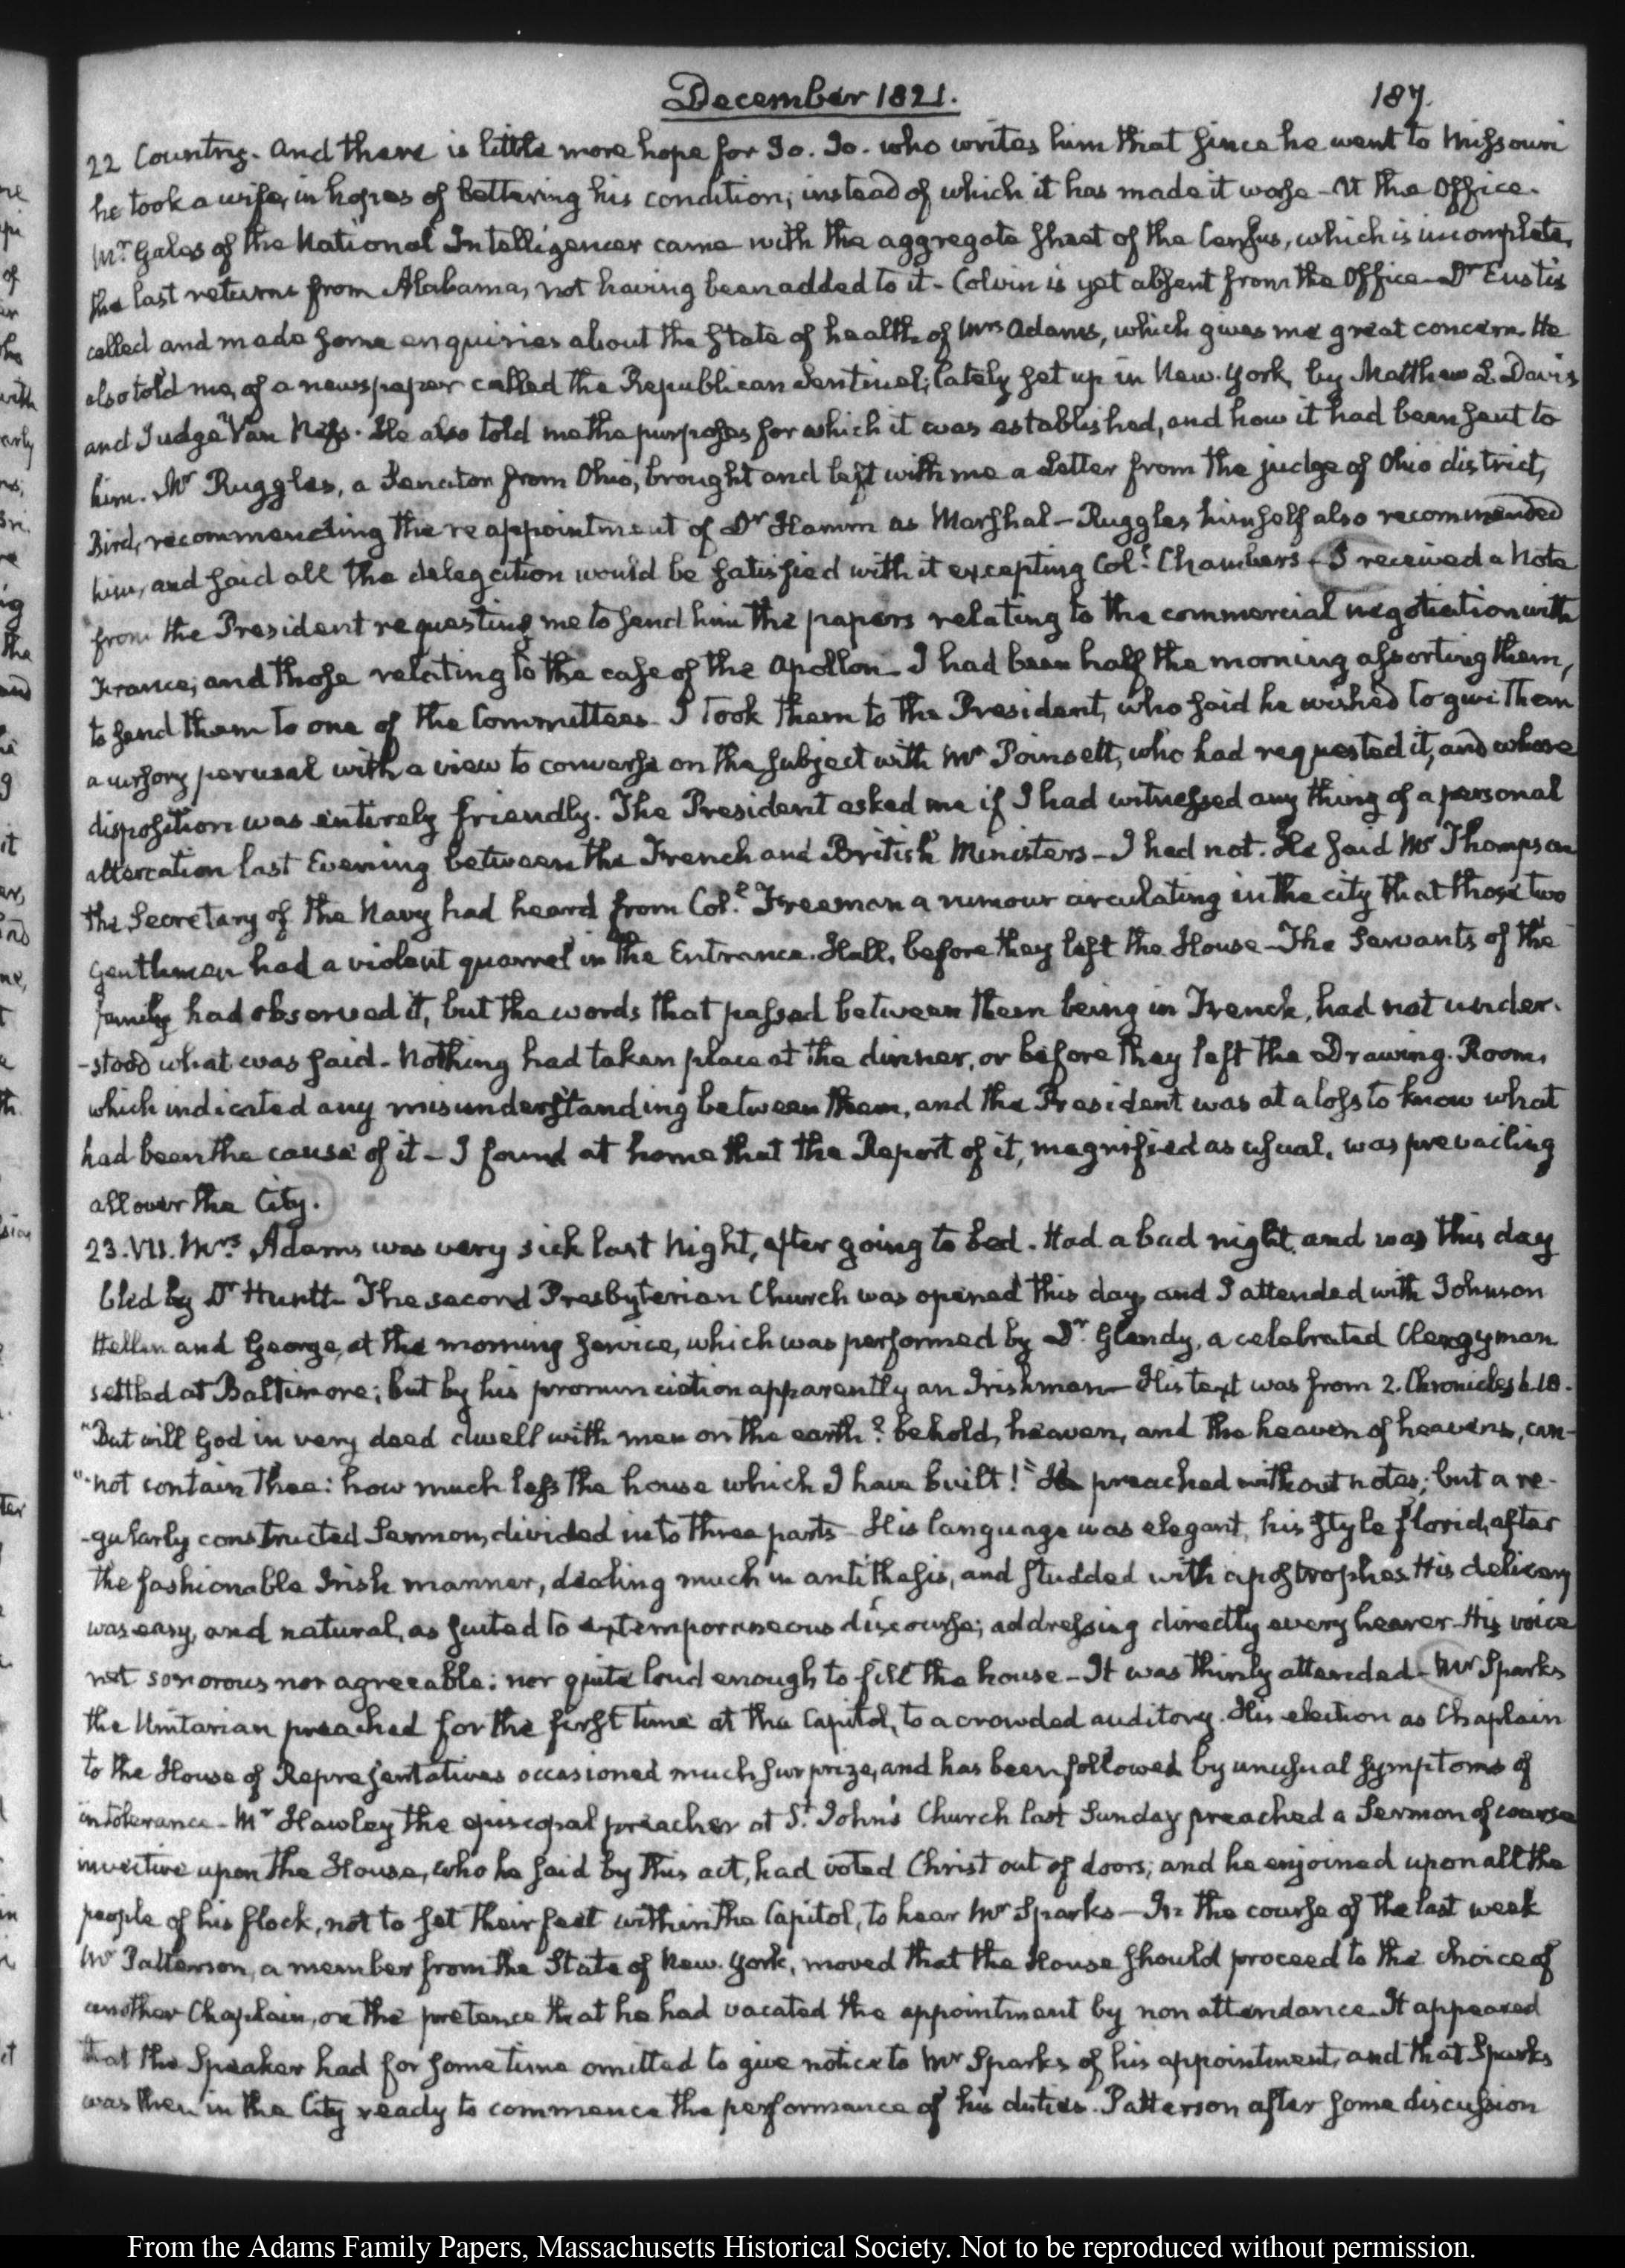 December 1821.
187.
22 Country. And there is little more hope for Jo. Jo. who writes him that since he went to Missouri
he took a wife, in hopes of bettering his condition; instead of which it has made it worse - At the Office.
Mr. Gales of the National Intelligencer came with the aggregate sheet of the Census, which is incomplete,
the last returns from Alabama, not having been added to it - Colvin is yet absent from the Office - Dr Eustis
called and made some enquiries about the state of health of Mrs Adams, which gives me great concern. He
also told me, of a newspaper called the Republican Sentinel; lately set up in New-York, by Matthew L. Davis
and Judge Van Ness. He also told me the purposes for which it was established, and how it had been sent to
him. Mr Ruggles, a Senator from Ohio, brought and left with me a Letter from the judge of Ohio district,
Bird, recommending the reappointment of Dr Hamm as Marshal - Ruggles himself also recommended
him, and said all the delegation would be satisfied with it excepting Col. Chambers - I received a Note
from the President requesting me to send him the papers relating to the commercial negotiation with
France; and those relating to the case of the Apollon - I had been half the morning assorting them,
to send them to one of the Committees - I took them to the President, who said he wished to give them
a cursory perusal with a view to converse on the subject with Mr Poinsett, who had requested it, and whose
disposition was entirely friendly. The President asked me if I had witnessed any thing of a personal
altercation last Evening between the French and British Ministers - I had not. He said Mr Thompson
the Secretary of the Navy had heard from Col. Freeman a rumour circulating in the city that those two
Gentlemen had a violent quarrel in the Entrance-Hall, before they left the House - The Servants of the
family had observed it, but the words that passed between them being in French, had not under-
-stood what was said - Nothing had taken place at the dinner, or before they left the Drawing-Room,
which indicated any misunderstanding between them, and the President was at a loss to know what
had been the cause of it - I found at home that the Report of it, magnified as usual, was prevailing
all over the City.
23. VII. Mrs. Adams was very sick last Night, after going to bed. Had a bad night, and was this day
bled by Dr Huntt - The second Presbyterian Church was opened this day, and I attended with Johnson
Hellen and George, at the morning service, which was performed by Dr. Glendy, a celebrated Clergyman
settled at Baltimore; but by his pronunciation apparently an Irishman - His text was from 2. Chronicles 6.18.
"But will God in very deed dwell with men on the earth? behold, heaven, and the heaven of heavens, can-
"-not contain thee: how much less the house which I have built!" He preached without notes; but a re-
-gularly constructed Sermon, divided into three parts - His language was elegant, his style florid, after
the fashionable Irish manner, dealing much in antithesis, and studded with apostrophes. His delivery
was easy, and natural, as suited to extemporaneous discourse; addressing directly every hearer - His voice
not sonorous nor agreeable; nor quite loud enough to fill the house - It was thinly attended - Mr Sparks
the Unitarian preached for the first time at the Capitol, to a crowded auditory. His election as Chaplain
to the House of Representatives occasioned much surprize, and has been followed by unusual symptoms of
intolerance - Mr Hawley the episcopal preacher at St. John's Church last Sunday preached a Sermon of coarse
invective upon the House, who he said by this act, had voted Christ out of doors; and he enjoined upon all the
people of his flock, not to set their feet within the Capitol, to hear Mr Sparks - In the course of the last week
Mr Patterson, a member from the State of New-York, moved that the House should proceed to the choice of
another Chaplain, on the pretence that he had vacated the appointment by non attendance - It appeared
that the Speaker had for some time omitted to give notice to Mr Sparks of his appointment, and that Sparks
was then in the City ready to commence the performance of his duties. Patterson after some discussion
From the Adams Family Papers, Massachusetts Historical Society. Not to be reproduced without permission.